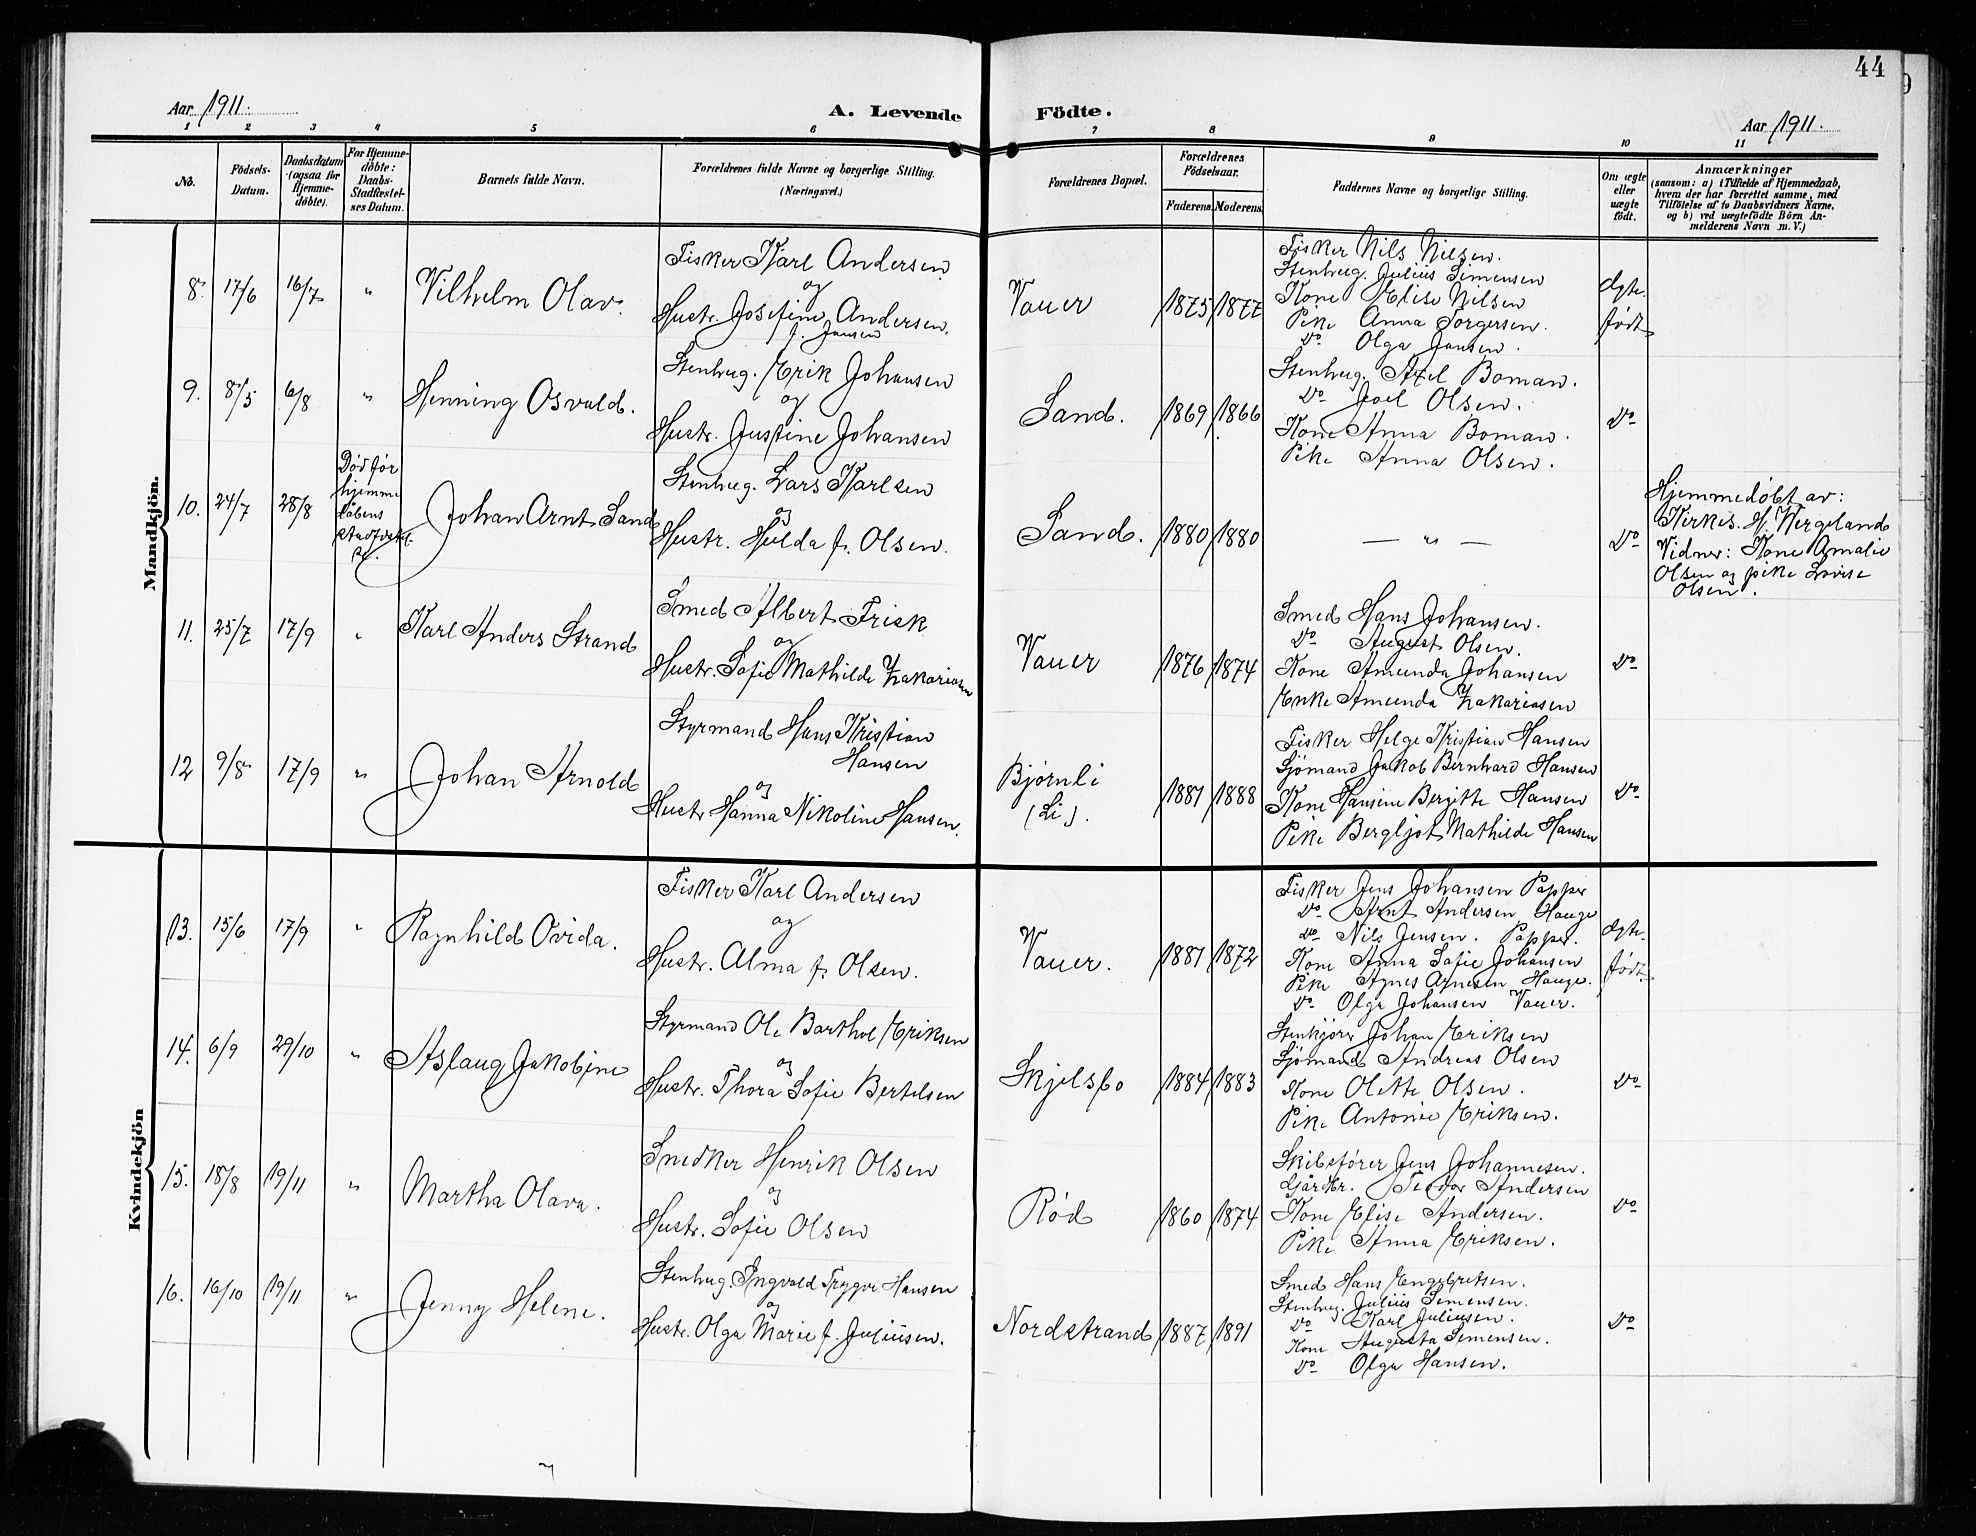 44
Aar 1911.
A. Levende Födte.
Aar 1911.
1 2 3 4 5 6 7 8 9 10 11
No.
Födsels-
Datum.
Daabsdatum
(ogsaa for
Hjemme-
döbte).
For Hjemme-
döbte:
Daabs-
Stadfæstel-
ses Datum.
Barnets fulde Navn.
Forældrenes fulde Navne og borgerlige Stilling.
(Næringsvei.)
Forældrenes Bopæl.
Forældrenes
Födselsaar.
Faderens. Moderens.
Faddernes Navne og borgerlige Stilling.
Om ægte
eller
uægte
födt.
Anmærkninger
(saasom: a) i Tilfælde af Hjemmedaab,
hvem der har forrettet samme, med
Tilföielse af to Daabsvidners Navne.
og b) ved uægtefödte Börn An-
melderens Navn m. V.)
Mandkjön.
8. 17/6 16/7 " Vilhelm Olav.
Fisker Karl Andersen
og
Hustr. Josefine Andersen.
f. Jansen
Vauer 1875 1877
Fisker Nils Nilsen.
Stenhug. Julius Simensen
Kone Elise Nilsen
Pike Anna Torgersen.
Do Olga Jansen.
Ægte-
født
9. 8/5 6/8 " Henning Osvald.
Stenhug. Erik Johansen
og
Hustr. Justine Johansen
Sand. 1869 1866
Stenhug. Axel Boman.
Do Joel Olsen.
Kone Anna Boman.
Pike Anna Olsen.
Do
10. 24/7 28/8
Død før
hjemme
dåbens
stadfæst.
Johan Arnt Sand
Stenhug. Lars Karlsen
og
Hustr. Hulda f. Olsen.
Sand. 1880 1880
— " —
Do
Hjemmedøbt av:
Kirkes. H. Wergeland
Vidner: Kone Amalie
Olsen og pike Lovise
Olsen.
11. 25/7 17/9 " Karl Anders Strand
Smed Albert Frisk
og
Hustr. Sofie Mathilde Zakariasen
Vauer 1876 1874
Smed Hans Johansen.
Do August Olsen.
Kone Amunda Johansen
Enke Amunda Zakariasen
Do
12 9/8 17/9 " Johan Arnold
Styrmand Hans Kristian
Hansen
og
Hustr Hanna Nikoline Hansen.
Bjørnli
(Li).
1881 1888
Fisker Helge Kristian Hansen
Sjömand Jakob Bernhard Hansen
Kone Hansine Bergitte Hansen
Pike Bergljot Mathilde Hansen
Do
Kvindekjön
13. 15/6 17/9 " Ragnhild Ovida.
Fisker Karl Andersen
og
Hustr. Alma f. Olsen.
Vauer. 1881 1872
Fisker Jens Johansen Papper
Do Arnt Andersen Hauge
Do Nils Jensen. Papper.
Kone Anna Sofie Johansen
Pike Agnes Agnesen Hauge.
Do Olga Johansen Vauer.
Ægte-
født
14. 6/9 29/10 " Aslaug Jakobine
Styrmand Ole Barthol Eriksen
og
Hustr. Thora Sofie Bertelsen
Skjelsbo 1884 1883
Stenkjörer Johan Eriksen
Sjömand Andreas Olsen
Kone Olette Olsen.
Pike Antonie Eriksen.
Do
15. 18/8 19/11 " Martha Olava.
Snedker Henrik Olsen
og
Hustr. Sofie Olsen
Rød 1860 1874
Skibsfører Jens Johannesen.
Gårdbr. Teodor Andersen
Kone Elise Andersen.
Pike Anna Eriksen.
Do
16. 16/10 19/11 " Jenny Helene.
Stenhug. Ingvald Trygve Hansen
og
Hustr. Olga Marie f. Juliussen.
Nordstrand 1887 1891
Smed Hans Engebretsen.
Stenhug. Julius Simensen.
Do Karl Juliusen.
Kone Augusta Simensen.
Do Olga Hansen.
Do